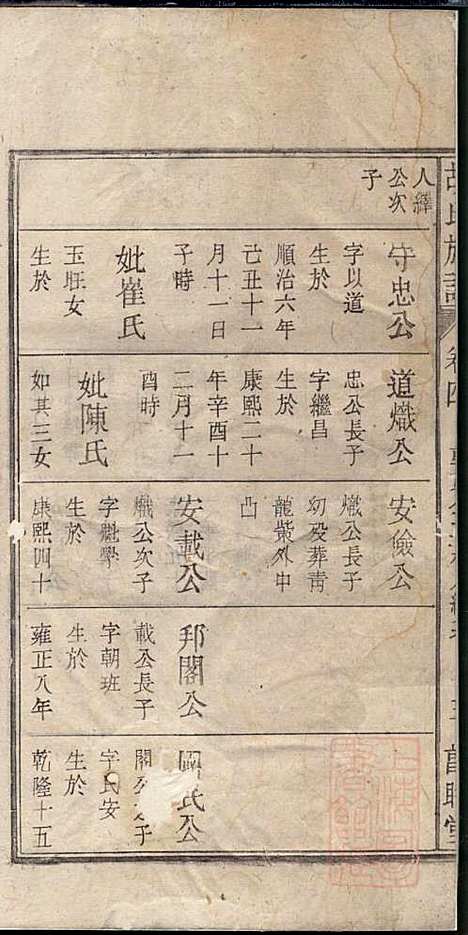 人繹
公次
子
守忠公
字以道
生於
順治六年
己丑十一
月十一日
子時
妣崔氏
玉旺女
生於
道熾公
忠公長子
字繼昌
生於
康熙二十
年辛酉十
二月十一
酉時
妣陳氏
如其三女
安儉公
熾公長子
幼殁葬青
龍柴外中
凸
安載公
熾公次子
字魁學
生於
康熙四十
邦閣公
載公長子
字朝班
生於
雍正八年
國氏公
閣公子
字民安
生於
乾隆十五
胡氏族譜
卷四